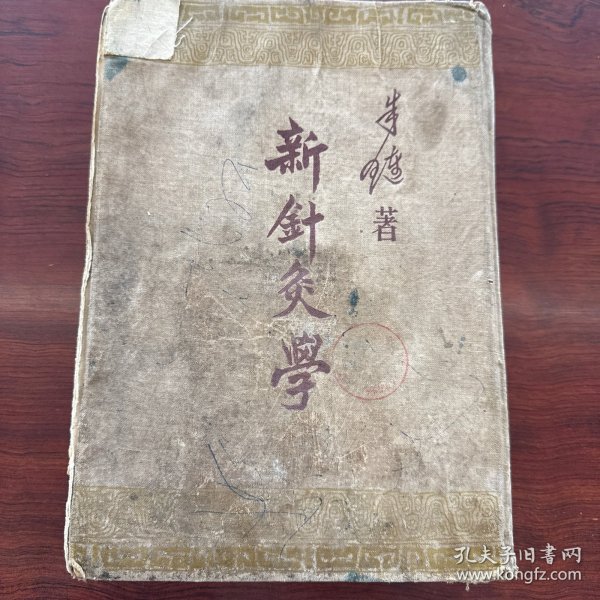 朱璉
著
新針灸學
孔夫子旧書网
www.kongfz.com